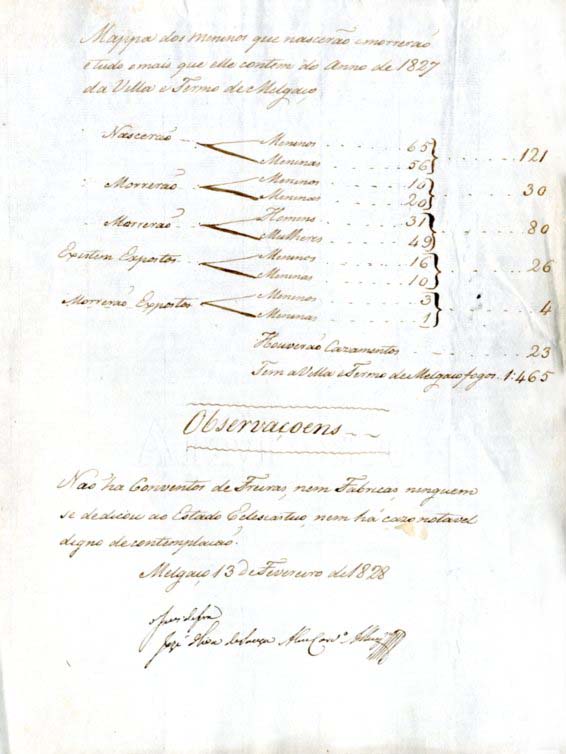 Mappa dos meninos que nascerão e morrerão
e tudo o mais que elle contem do Anno de 1827
da Villa e Termo de Melgaço
Nascerão Meninos 65
Meninas 56 121
Morrerão Meninos 10
Meninas 20 30
Morrerão Homens 31
Mulheres 49 80
Existem Expostos Meninos 16
Meninas 10 26
Morrerão Expostos Meninos 3
Meninas 1 4
Houverão Cazamentos 23
Tem a Villa e Termo de Melgaço fogos 1:465
Observaçoens
Não ha Conventos de Freiras, nem Fabricas, ninguem
se dedicou ao Estado, nem há cazo notavel
digno de contemplacaõ.
Melgaço 13 de Fevereiro de 1828
Jozé